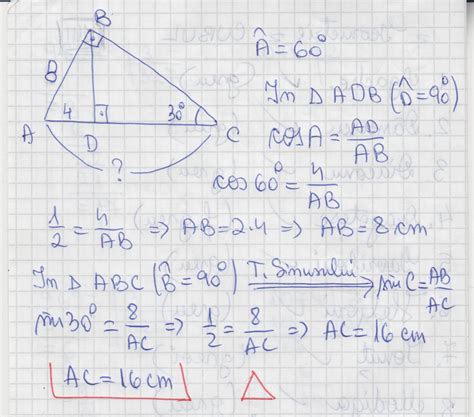 B
8
4
30°
A
D
C
?
Â = 60°
În Δ ADB (D̂ = 90°)
cos A = AD/AB
cos 60° = 4/AB
1/2 = 4/AB => AB = 2·4 => AB = 8 cm
În Δ ABC (B̂ = 90°) T. Sinusului => sin C = AB/AC
sin 30° = 8/AC => 1/2 = 8/AC => AC = 16 cm
AC = 16 cm